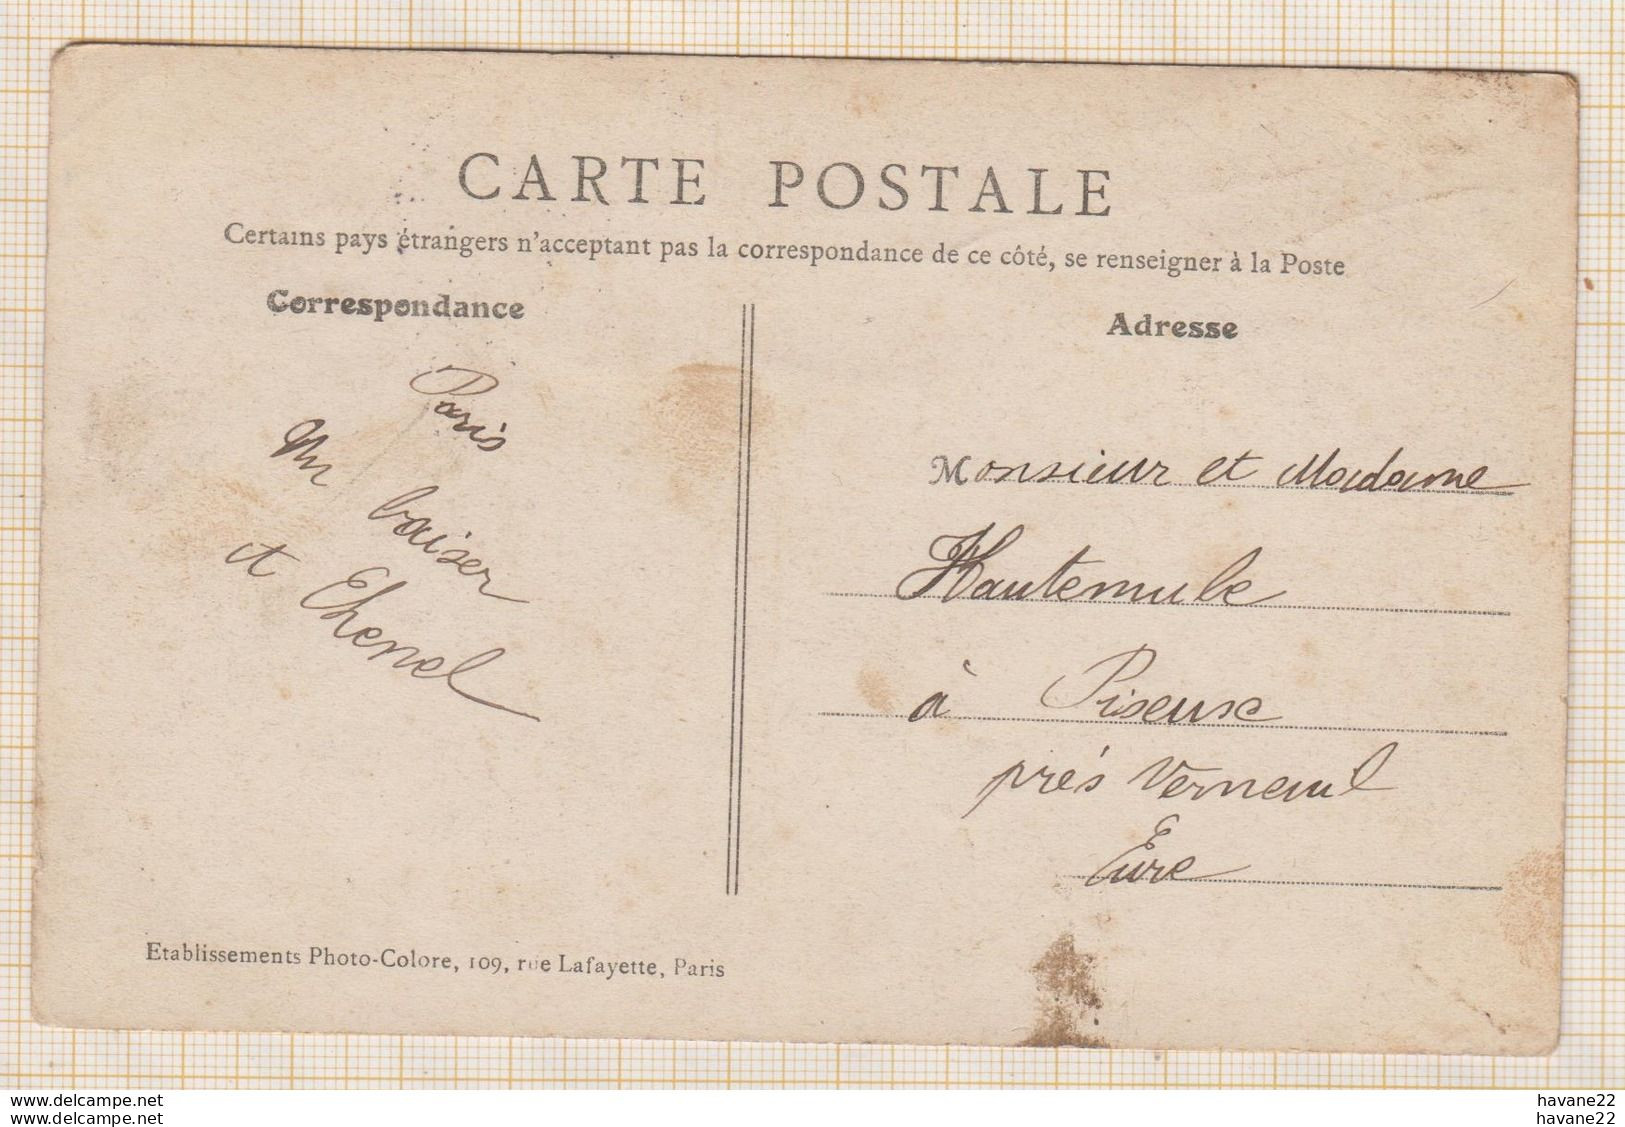 CARTE POSTALE
Certains pays étrangers n'acceptant pas la correspondance de ce côté, se renseigner à la Poste
Correspondance
Paris
Un baiser
et Ehenel
Etablissements Photo-Colore, 109, rue Lafayette, Paris
Adresse
Monsieur et Madame
Hautemule
à Piseux
près Verneuil
Eure
delcampe.net
delcampe.net
havane22
havane22